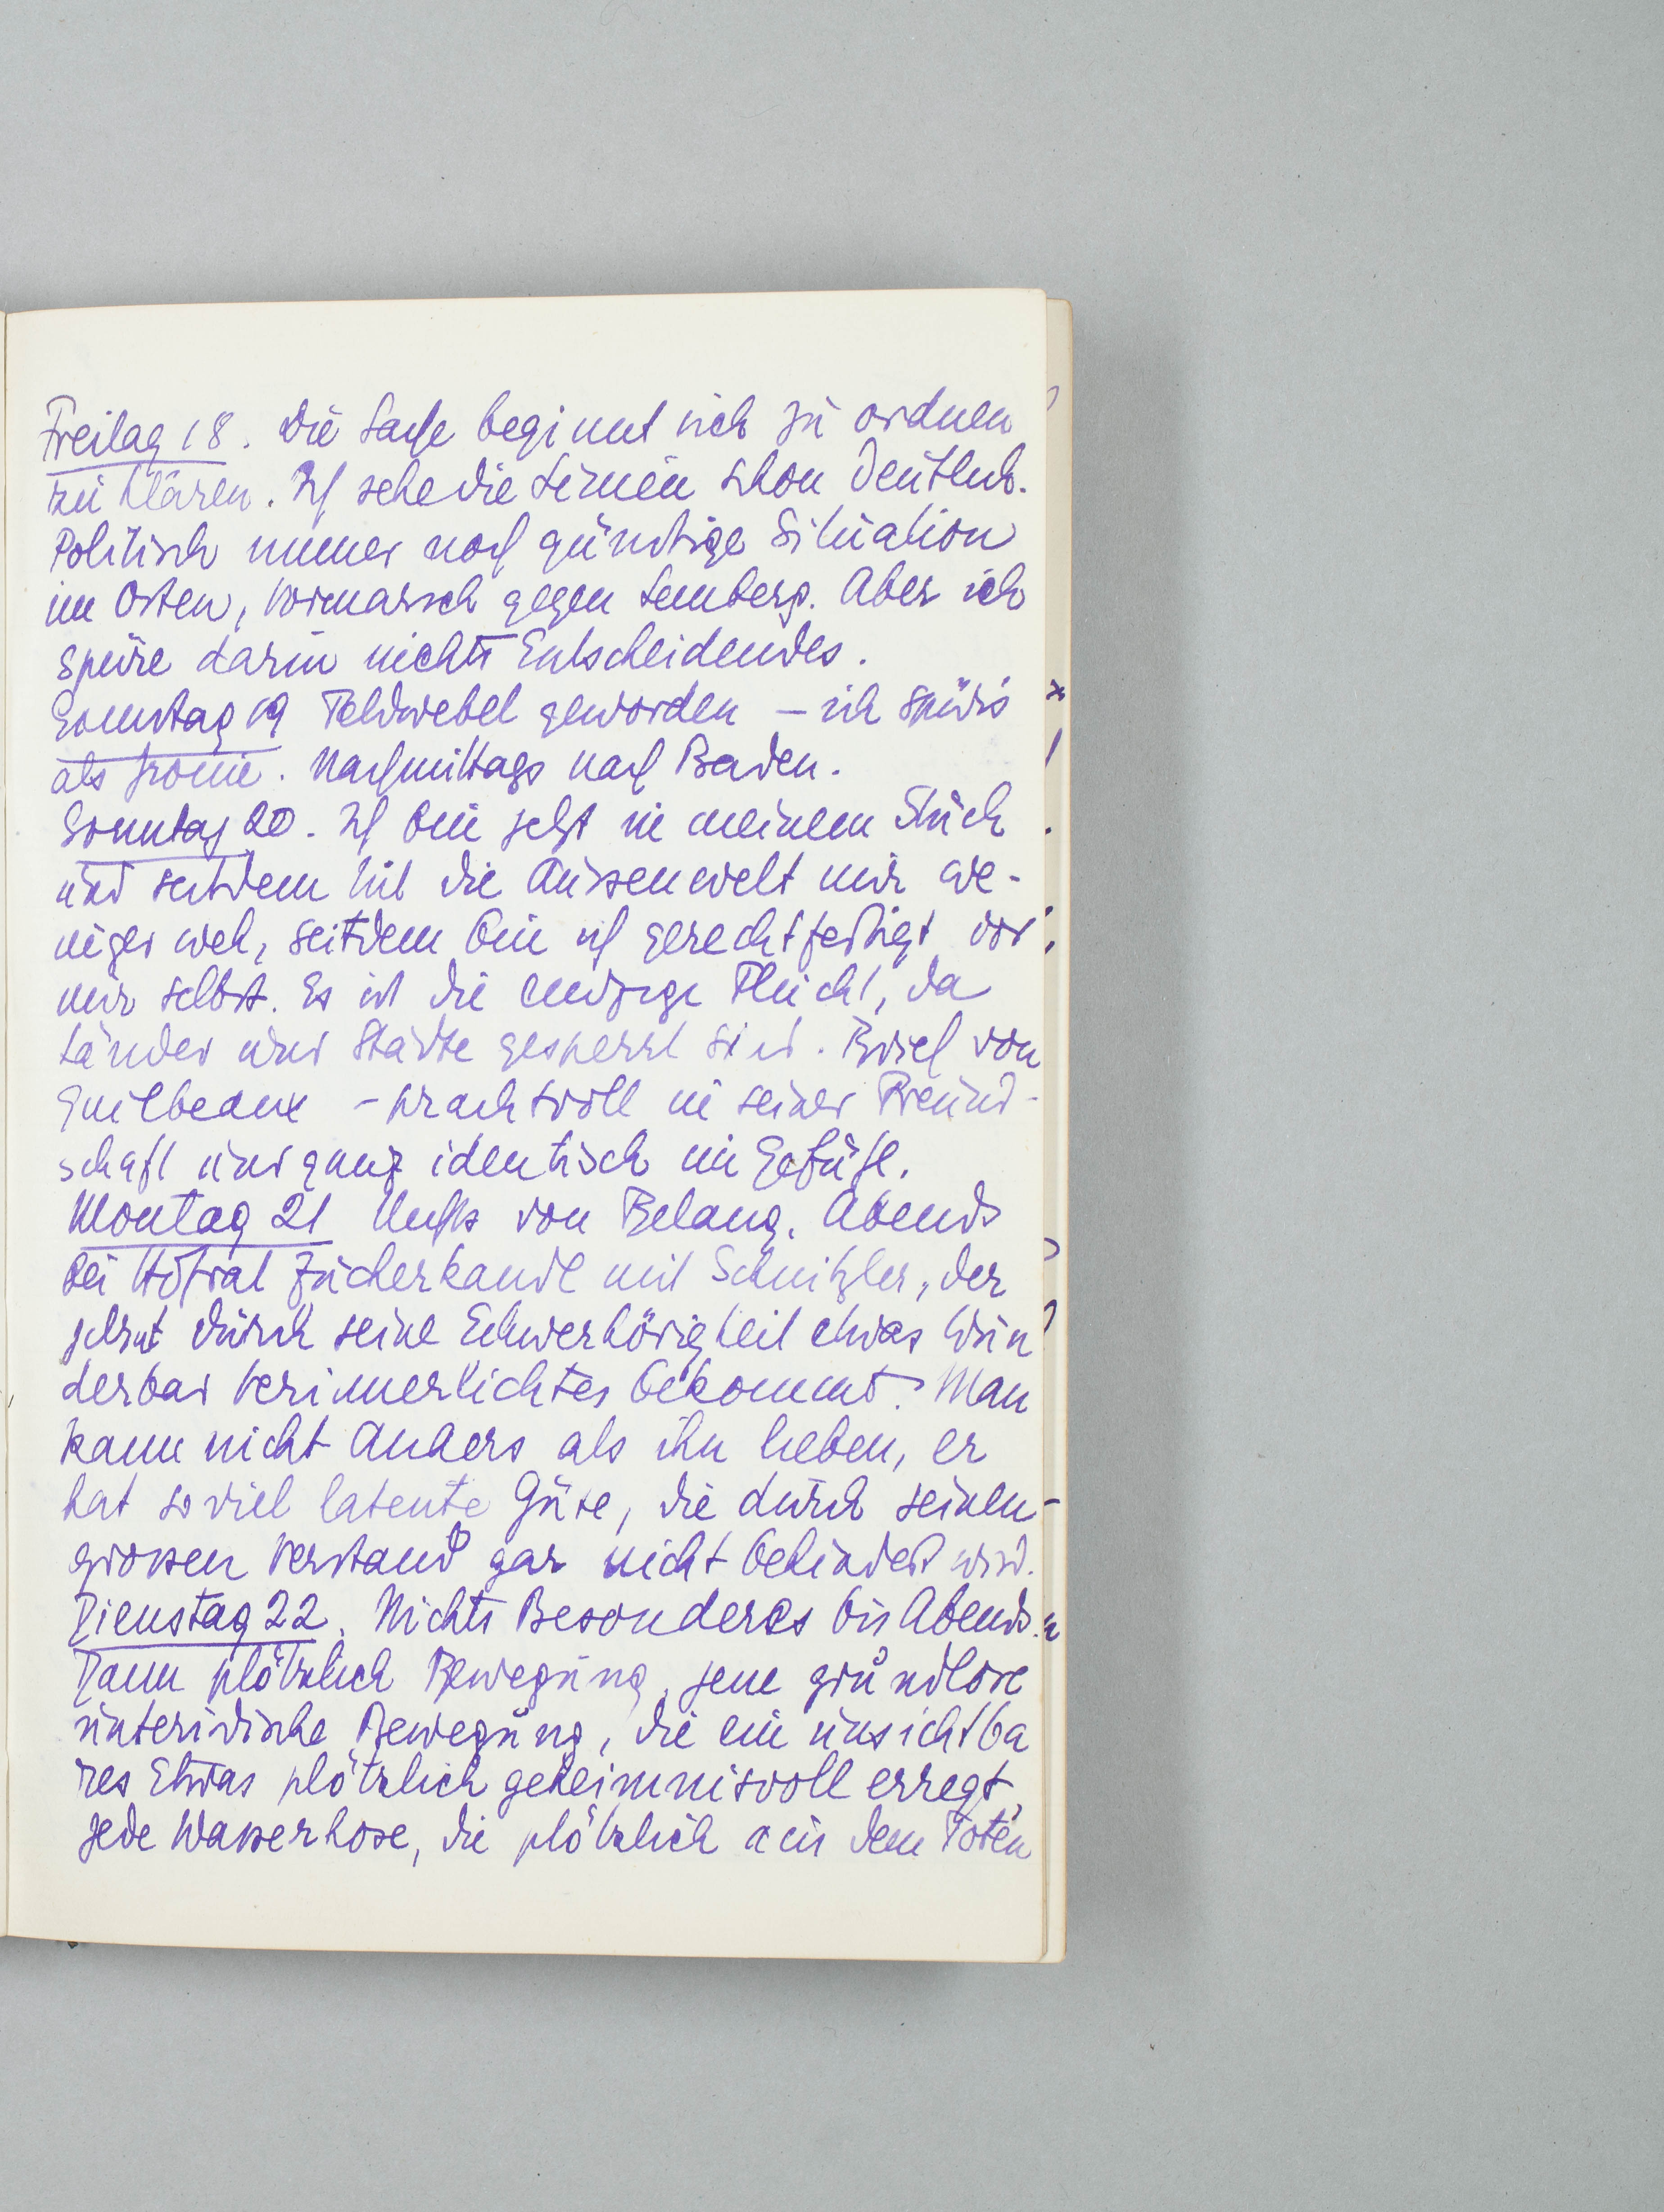 Freitag 18. Die Sache beginnt sich zu ordnen
zu klären. Ich sehe die Linien schon deutlich.
Politisch immer noch günstige Situation
im Osten, Vormarsch gegen Lemberg. Aber ich
spüre darin nichts Entscheidendes.
Samstag 19 Feldwebel geworden – ich spürs
als Ironie. Nachmittags nach Baden.
Sonntag 20. Ich bin jetzt in meinem Stück
und seitdem tut die Aussenwelt mir we-
niger weh, seitdem bin ich gerechtfertigt vor
mir selbst. Es ist die einzige Flucht, da
Länder und Städte gesperrt sind. Brief von
Guilbeaux – prachtvoll in seiner Freund-
schaft und ganz identisch im Gefühl.
Montag 21 Nichts von Belang. Abends
bei Hofrat Zuckerkandl mit Schnitzler, der
jetzt durch seine Schwerhörigkeit etwas Wun
derbar Verinnerlichtes bekommt. Man
kann nicht anders als ihn lieben, er
hat so viel latente Güte, die durch seinen
grossen Verstand gar nicht behindert wird.
Dienstag 22. Nichts Besonderes bis Abends.
Dann plötzlich Bewegung, jene grundlose
unterirdische Bewegung, die ein unsichtba
res Etwas plötzlich geheimnisvoll erregt,
jede Wasserhose, die plötzlich aus dem Toten